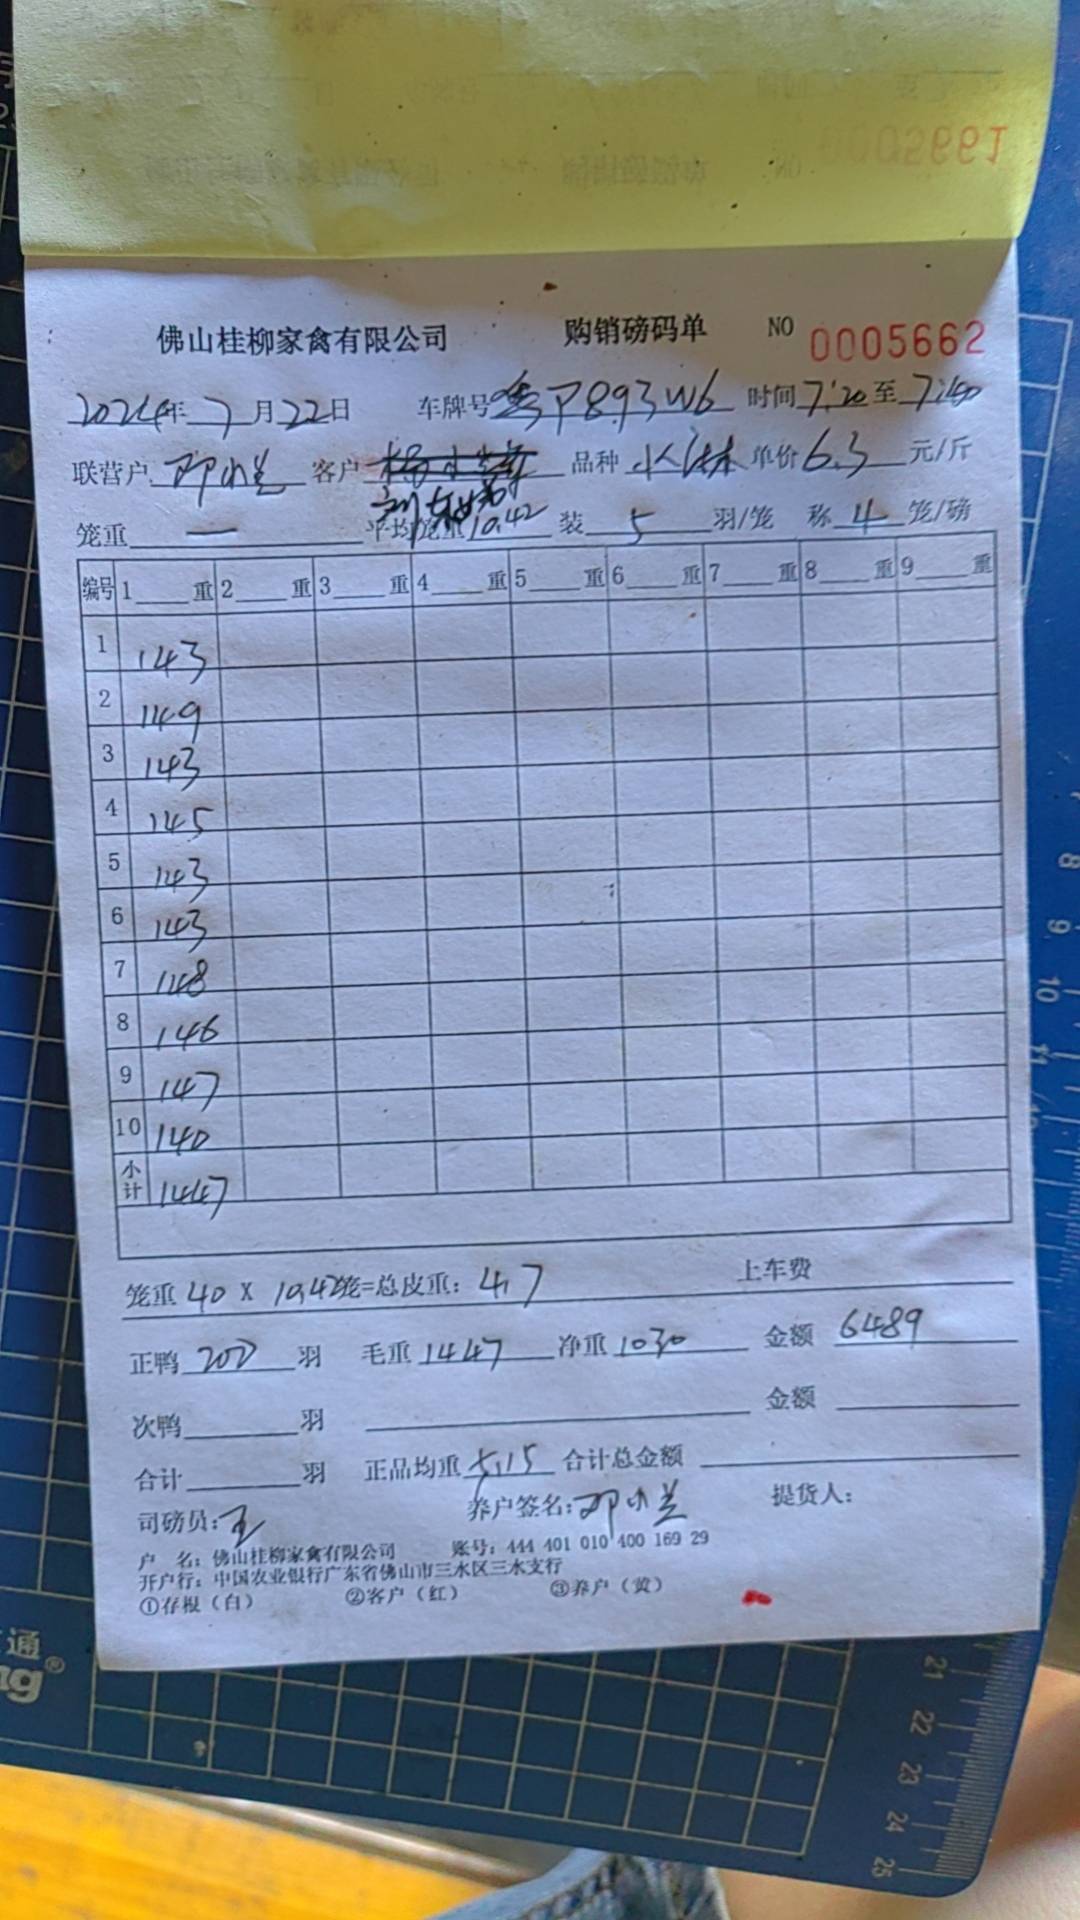 0005661
佛山桂柳家禽有限公司 购销磅码单 NO 0005662
2024年 7 月 22 日 车牌号 粤P893W6 时间 7:20 至 7:40
联营户 邓小兰 客户 品种 单价 6.3 元/斤
笼重 一 平均笼重 10.42 装 5 羽/笼 称 4 笼/磅
编号 1 重 2 重 3 重 4 重 5 重 6 重 7 重 8 重 9 重
1 143
2 149
3 143
4 145
5 143
6 143
7 148
8 146
9 147
10 140
小计 1447
笼重 40 X 10.42 笼=总皮重: 417 上车费
正鸭 200 羽 毛重 1447 净重 1030 金额 6489
次鸭 羽 金额
合计 羽 正品均重 5.15 合计总金额
司磅员: 王 养户签名: 邓小兰 提货人:
户 名: 佛山桂柳家禽有限公司 账号: 444 401 010 400 169 29
开户行: 中国农业银行广东省佛山市三水区三水支行
①存根（白） ②客户（红） ③养户（黄）
8
9
10
11
通®
21
22
23
24
25